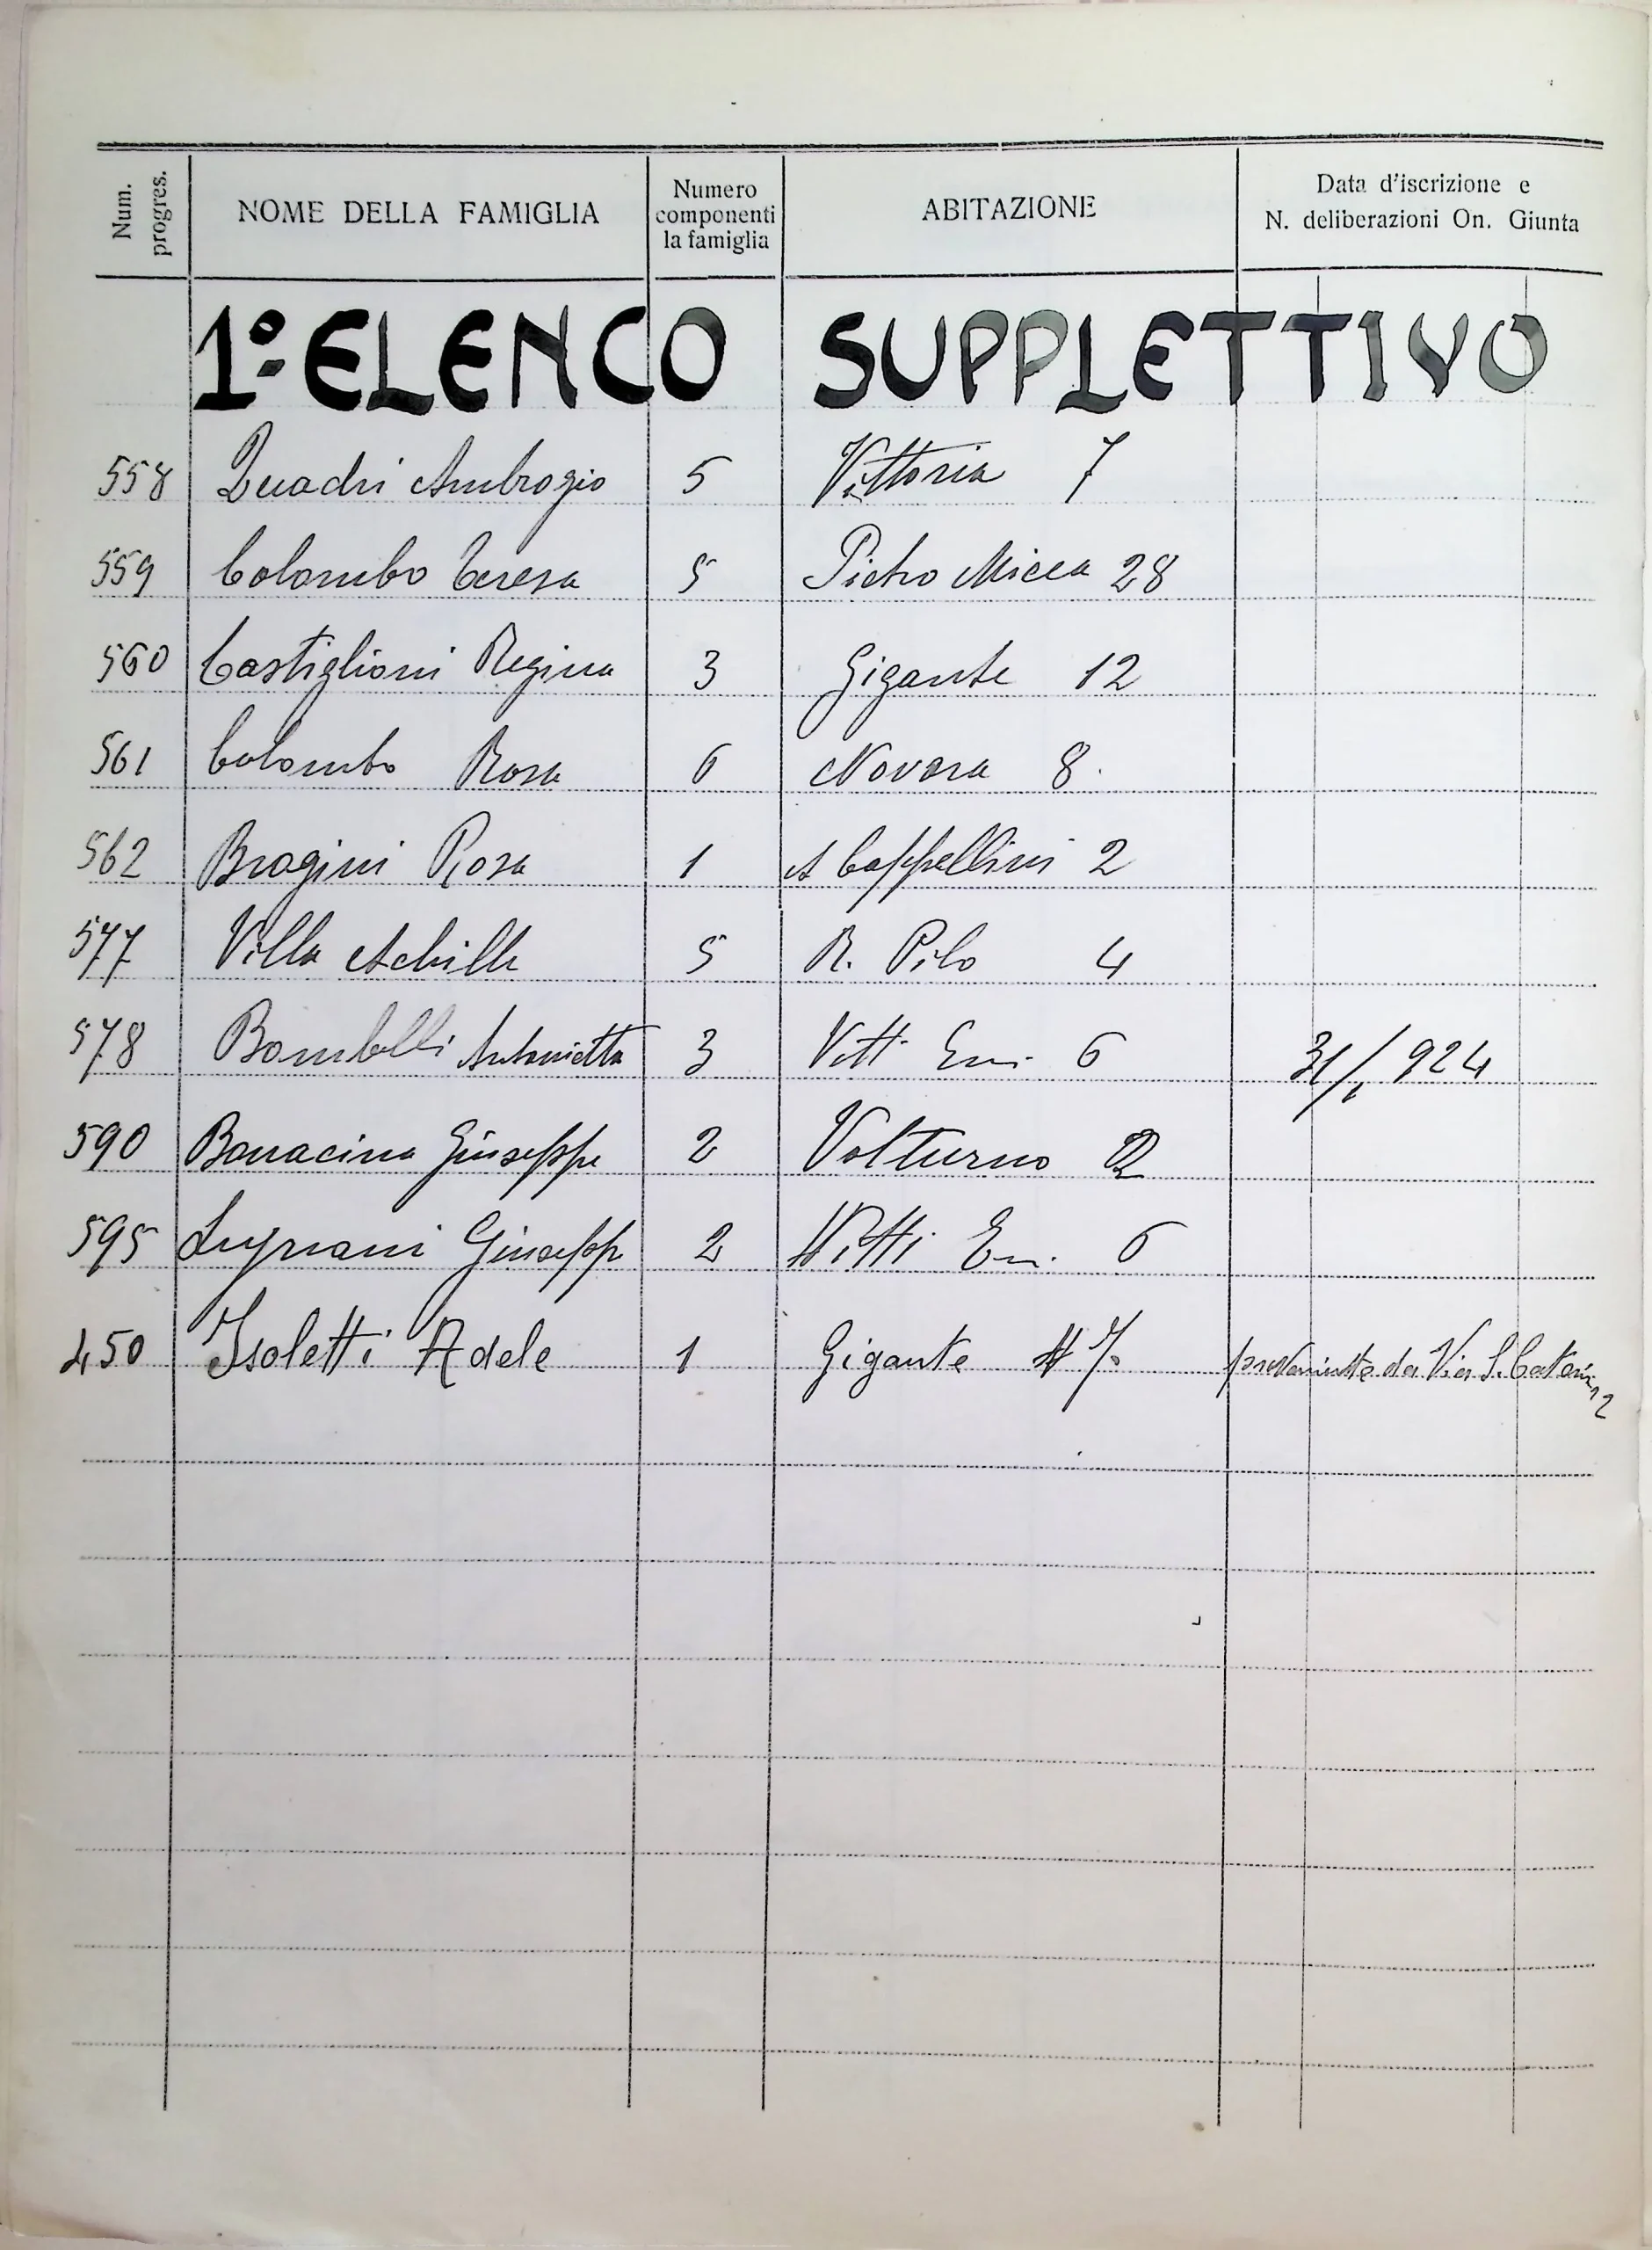 Num. progres. NOME DELLA FAMIGLIA Numero componenti la famiglia ABITAZIONE Data d'iscrizione e N. deliberazioni On. Giunta
1º ELENCO SUPPLETTIVO
558 Quadri Ambrogio 5 Vittoria 7
559 Colombo Teresa 5 Pietro Micca 28
560 Castiglioni Regina 3 Gigante 12
561 Colombo Rosa 6 Novara 8.
562 Brogini Rosa 1 A Cappellini 2
577 Villa Achille 5 R. Pilo 4
578 Bombelli Antonietta 3 Vitt Em. 6 31/1 924
590 Bonacina Giuseppe 2 Volturno 2
595 Giuseppe 2 Vitt Em. 6
450 Isoletti Adele 1 Gigante 7 proveniente da Via S. Caterina 2